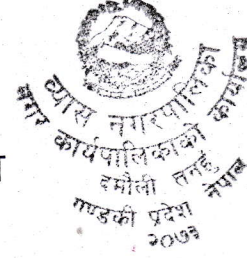 व्यास नगरपालिका
नगर कार्यपालिकाको कार्यालय
दमौली तनहुँ
गण्डकी प्रदेश नेपाल
२०७३